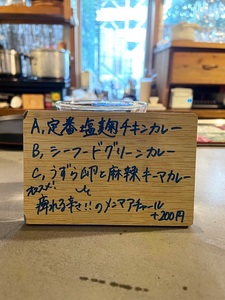 A, 定番塩麹チキンカレー
B, シーフードグリーンカレー
C, うずら卵と麻辣キーマカレー
オススメ!
痺れる辛さ!!のメンマアチャール
+200円